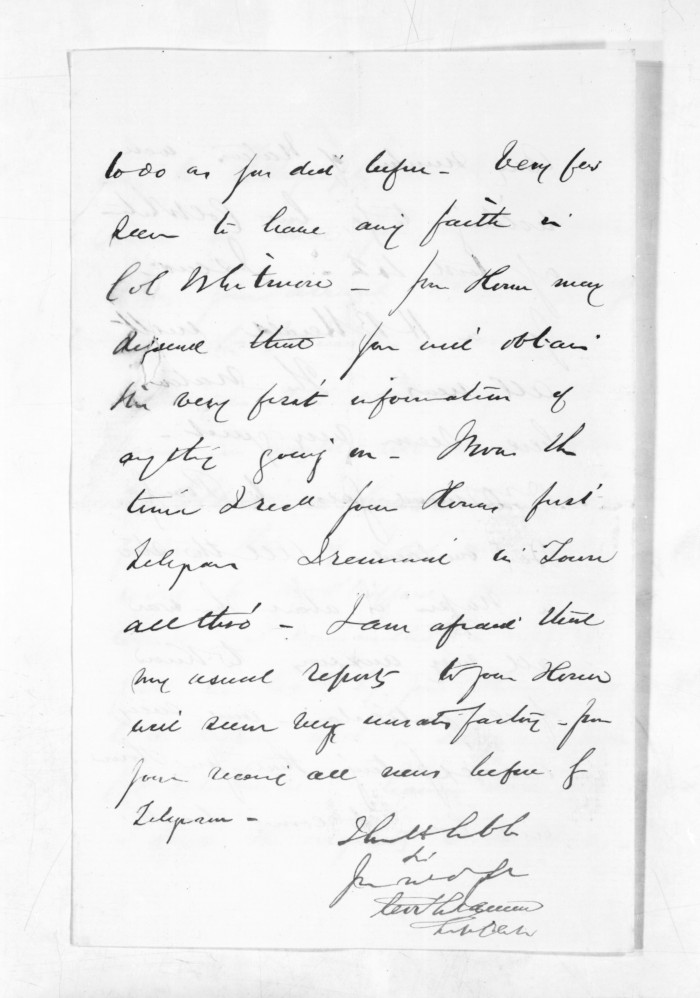 to do as you did before - Very few
seem to have any faith in
Col Whitmore - Your Honor may
depend that you will obtain
the very first information of
anything going on - From the
time I recd your Honors first
Telegram I remained in Town
all thro' - I am afraid that
my usual reports to your Honor
will seem very unsatisfactory - from
your receiving all news before by
Telegram -
I have the
Sir